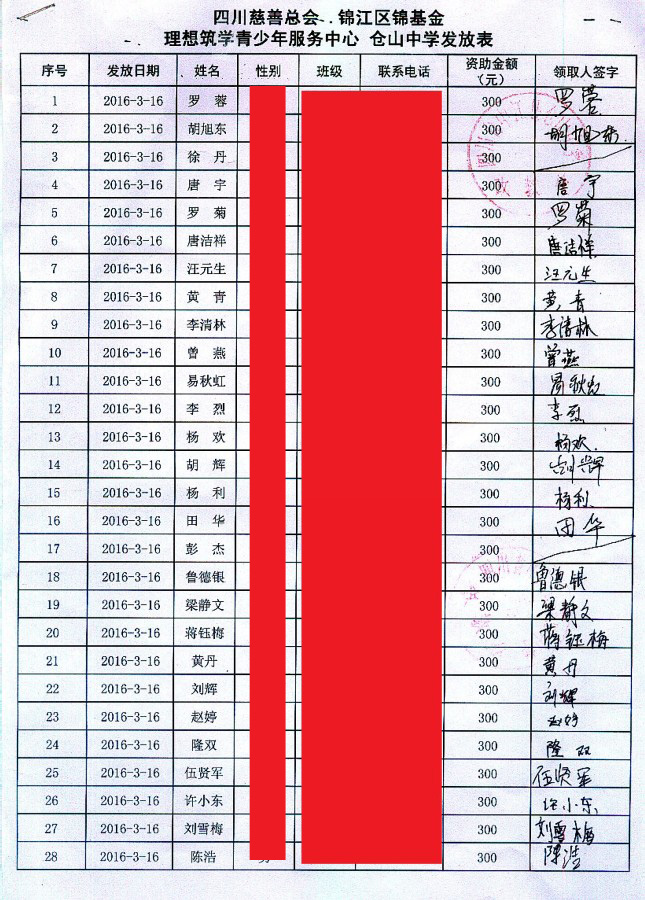 四川慈善总会 锦江区锦基金
理想筑学青少年服务中心 仓山中学发放表
序号 发放日期 姓名 性别 班级 联系电话 资助金额（元） 领取人签字
1 2016-3-16 罗蓉 300 罗蓉
2 2016-3-16 胡旭东 300 胡旭东
3 2016-3-16 徐丹 300
4 2016-3-16 唐宇 300 唐宇
5 2016-3-16 罗菊 300 罗菊
6 2016-3-16 唐洁祥 300 唐洁祥
7 2016-3-16 汪元生 300 汪元生
8 2016-3-16 黄青 300 黄青
9 2016-3-16 李清林 300 李清林
10 2016-3-16 曾燕 300 曾燕
11 2016-3-16 易秋虹 300 易秋虹
12 2016-3-16 李烈 300 李烈
13 2016-3-16 杨欢 300 杨欢
14 2016-3-16 胡辉 300 胡辉
15 2016-3-16 杨利 300 杨利
16 2016-3-16 田华 300 田华
17 2016-3-16 彭杰 300
18 2016-3-16 鲁德银 300 鲁德银
19 2016-3-16 梁静文 300 梁静文
20 2016-3-16 蒋钰梅 300 蒋钰梅
21 2016-3-16 黄丹 300 黄丹
22 2016-3-16 刘辉 300 刘辉
23 2016-3-16 赵婷 300 赵婷
24 2016-3-16 隆双 300 隆双
25 2016-3-16 伍贤军 300 伍贤军
26 2016-3-16 许小东 300 许小东
27 2016-3-16 刘雪梅 300 刘雪梅
28 2016-3-16 陈浩 300 陈浩